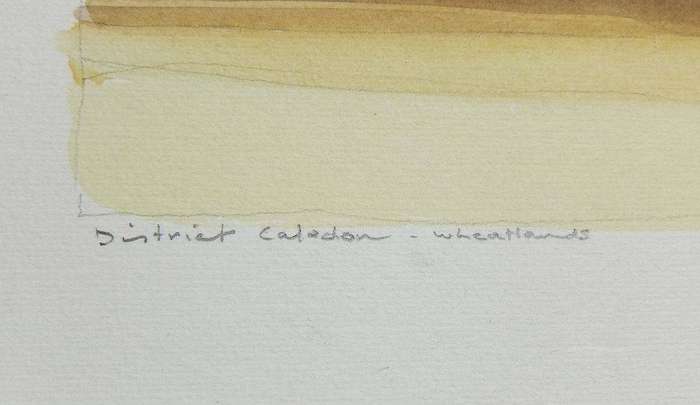 District Caledon - wheatlands